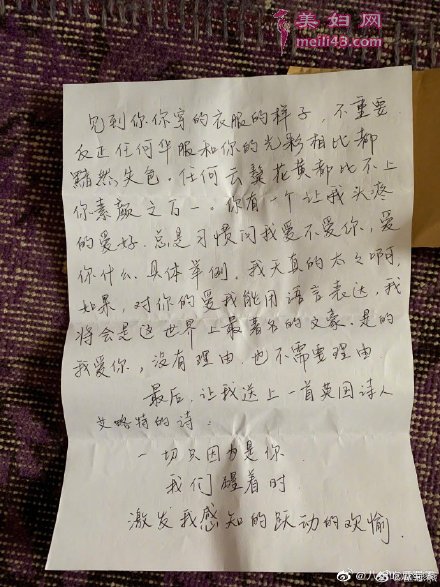 美妇网
meili43.com
见到你你穿的衣服的样子,不重要
反正任何华服和你的光彩相比都
黯然失色.任何云鬓花黄都比不上
你素颜之百一.你有一个让我头疼
的爱好.总是习惯问我爱不爱你,爱
你什么.具体举例.我天真的太太啊,
如果,对你的爱我能用语言表达,我
将会是这世界上最著名的文豪.是的
我爱你,没有理由.也不需要理由.
最后,让我送上一首英国诗人
艾略特的诗.
一切只因为是你
我们睡着时
激发我感知的跃动的欢愉.